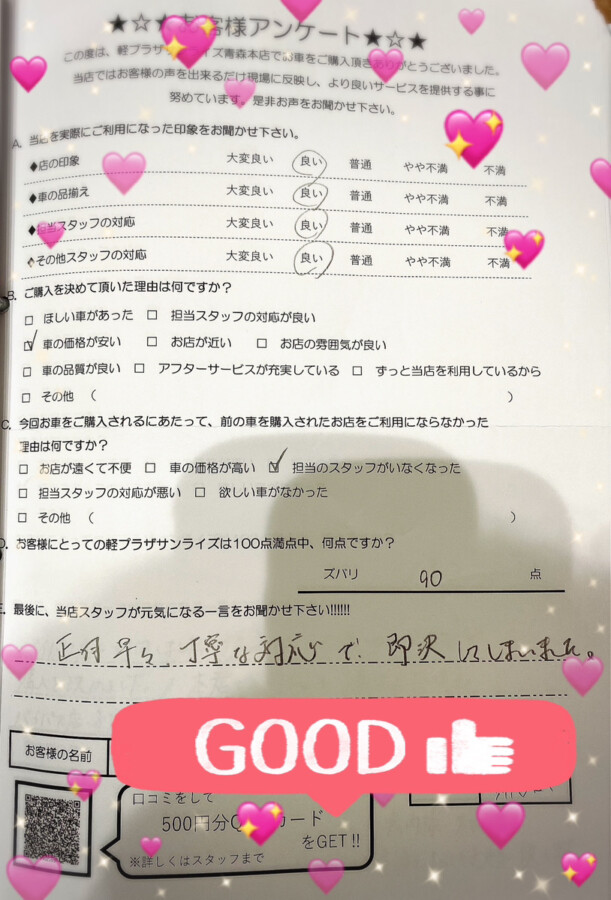 ★☆★お客様アンケート★☆★
この度は、軽プラザサンライズ青森本店でお車をご購入頂きありがとうございました。
当店ではお客様の声を出来るだけ現場に反映し、より良いサービスを提供する事に
努めています。是非お声をお聞かせ下さい。
A. 当店を実際にご利用になった印象をお聞かせ下さい。
◆店の印象 大変良い 良い 普通 やや不満 不満
◆車の品揃え 大変良い 良い 普通 やや不満 不満
◆担当スタッフの対応 大変良い 良い 普通 やや不満 不満
◆その他スタッフの対応 大変良い 良い 普通 やや不満 不満
B. ご購入を決めて頂いた理由は何ですか？
□ ほしい車があった □ 担当スタッフの対応が良い
☑ 車の価格が安い □ お店が近い □ お店の雰囲気が良い
□ 車の品質が良い □ アフターサービスが充実している □ ずっと当店を利用しているから
□ その他 （ ）
C. 今回お車をご購入されるにあたって、前の車を購入されたお店をご利用にならなかった
理由は何ですか？
□ お店が遠くて不便 □ 車の価格が高い ☑ 担当のスタッフがいなくなった
□ 担当スタッフの対応が悪い □ 欲しい車がなかった
□ その他 （ ）
D. お客様にとっての軽プラザサンライズは100点満点中、何点ですか？
ズバリ 90 点
E. 最後に、当店スタッフが元気になる一言をお聞かせ下さい!!!!!!
正月早々、丁寧な対応で 即決にしまいました。
GOOD
お客様の名前
口コミをして
500円分 カード
をGET!!
※詳しくはスタッフまで